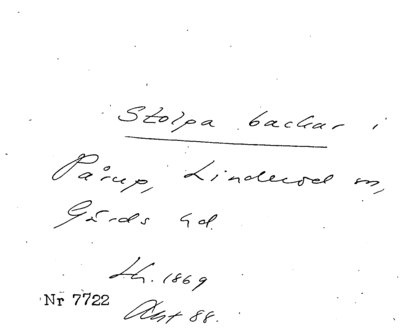 Stolpa backar i
Pårup, Linderöd sn,
Gärds hd.
Lh. 1869
Nr 7722
Akt 88.